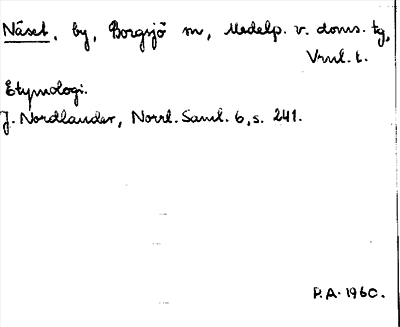 Näset, by, Borgsjö sn, Medelp. v. doms. tg,
Vrnl. t.
Etymologi.
J. Nordlander, Norrl. Saml. 6, s. 241.
P.A. 1960.